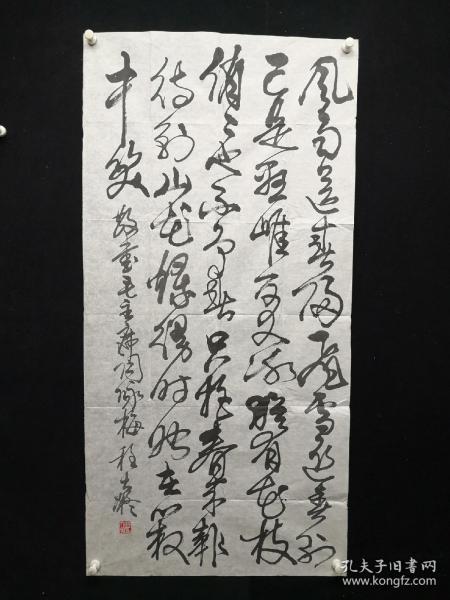 风雨送春归飞雪迎春到
已是悬崖百丈冰犹有花枝
俏俏也不争春只把春来報
待到山花烂漫时她在丛
中笑 敬 毛主席词咏梅 程
孔夫子旧书网
www.kongfz.com